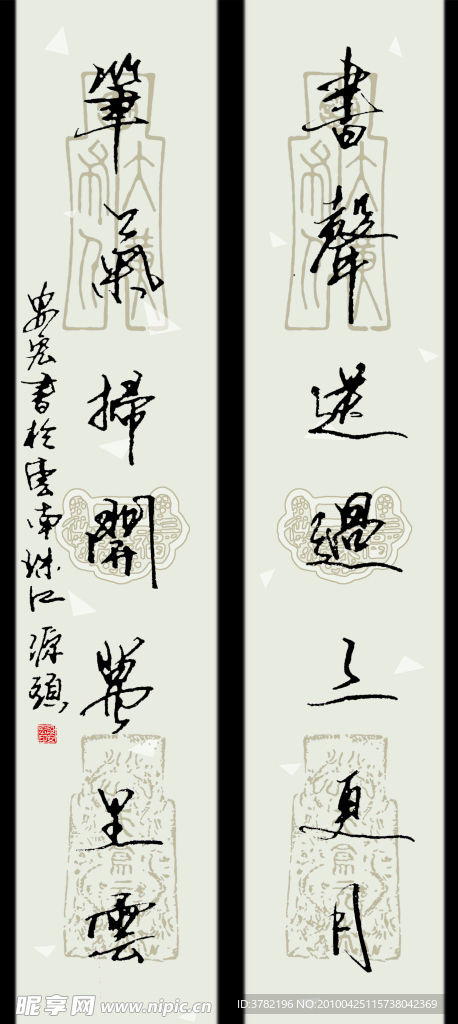 書聲送過三更月
筆氣掃開萬里雲
安宏書於雲南珠江源頭
昵享网 www.nipic.cn
ID:3782196 NO:20100425115738042369